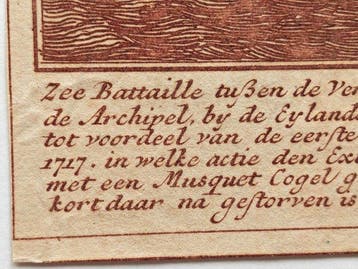 Zee Battaille tußen de Ve
de Archipel, by de Eyland
tot voordeel van de eerste
1717. in welke actie den Ex
met een Musquet Cogel g
kort daar na gestorven is